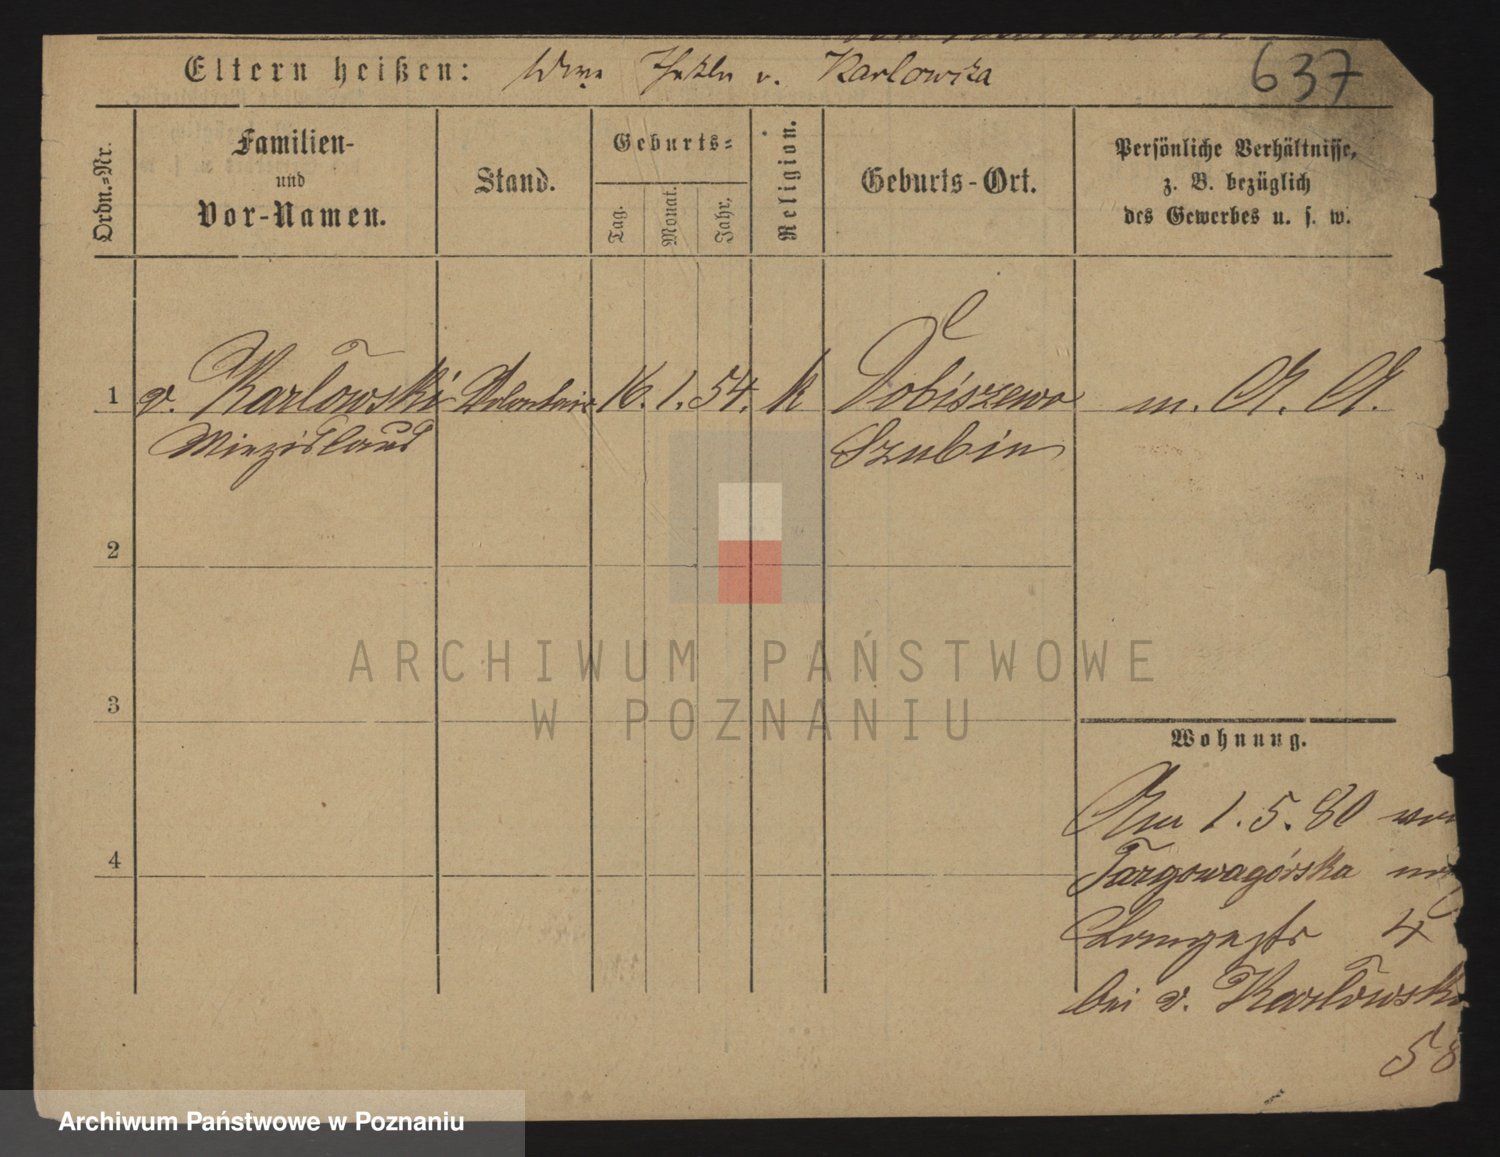 637
Eltern heißen: Wwe Thekla v. Karlowska
Ordn.-Nr.
Familien-
und
Vor-Namen.
Stand.
Geburts-
Tag.
Monat.
Jahr.
Religion.
Geburts-Ort.
Persönliche Verhältnisse,
z. B. bezüglich
des Gewerbes u. s. w.
1 v. Karlowski Volontair 16. 1. 54. k Dobiszewo m. A. A.
Miezislaus Szubin
2
3
4
Wohnung.
Am 1. 5. 80 von
Targowagórska nach
Langestr 4
bei v. Karlowski
58
ARCHIWUM PAŃSTWOWE
W POZNANIU
Archiwum Państwowe w Poznaniu